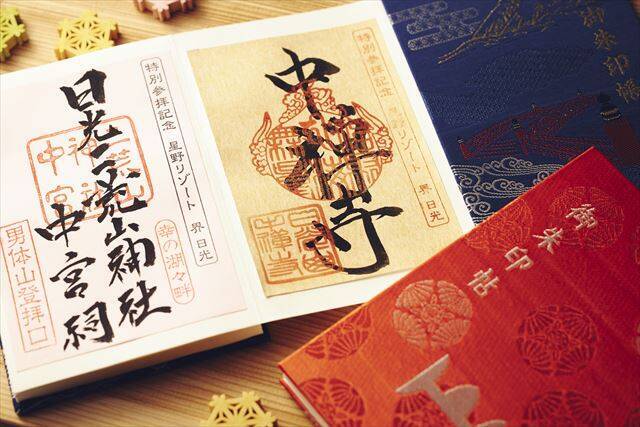 特別参拝記念 星野リゾート 界 日光
日光二荒山神社
中宮祠
幸の湖々畔
男体山登拝口
特別参拝記念 星野リゾート 界 日光
中禅寺
御朱印帳
御朱印帖